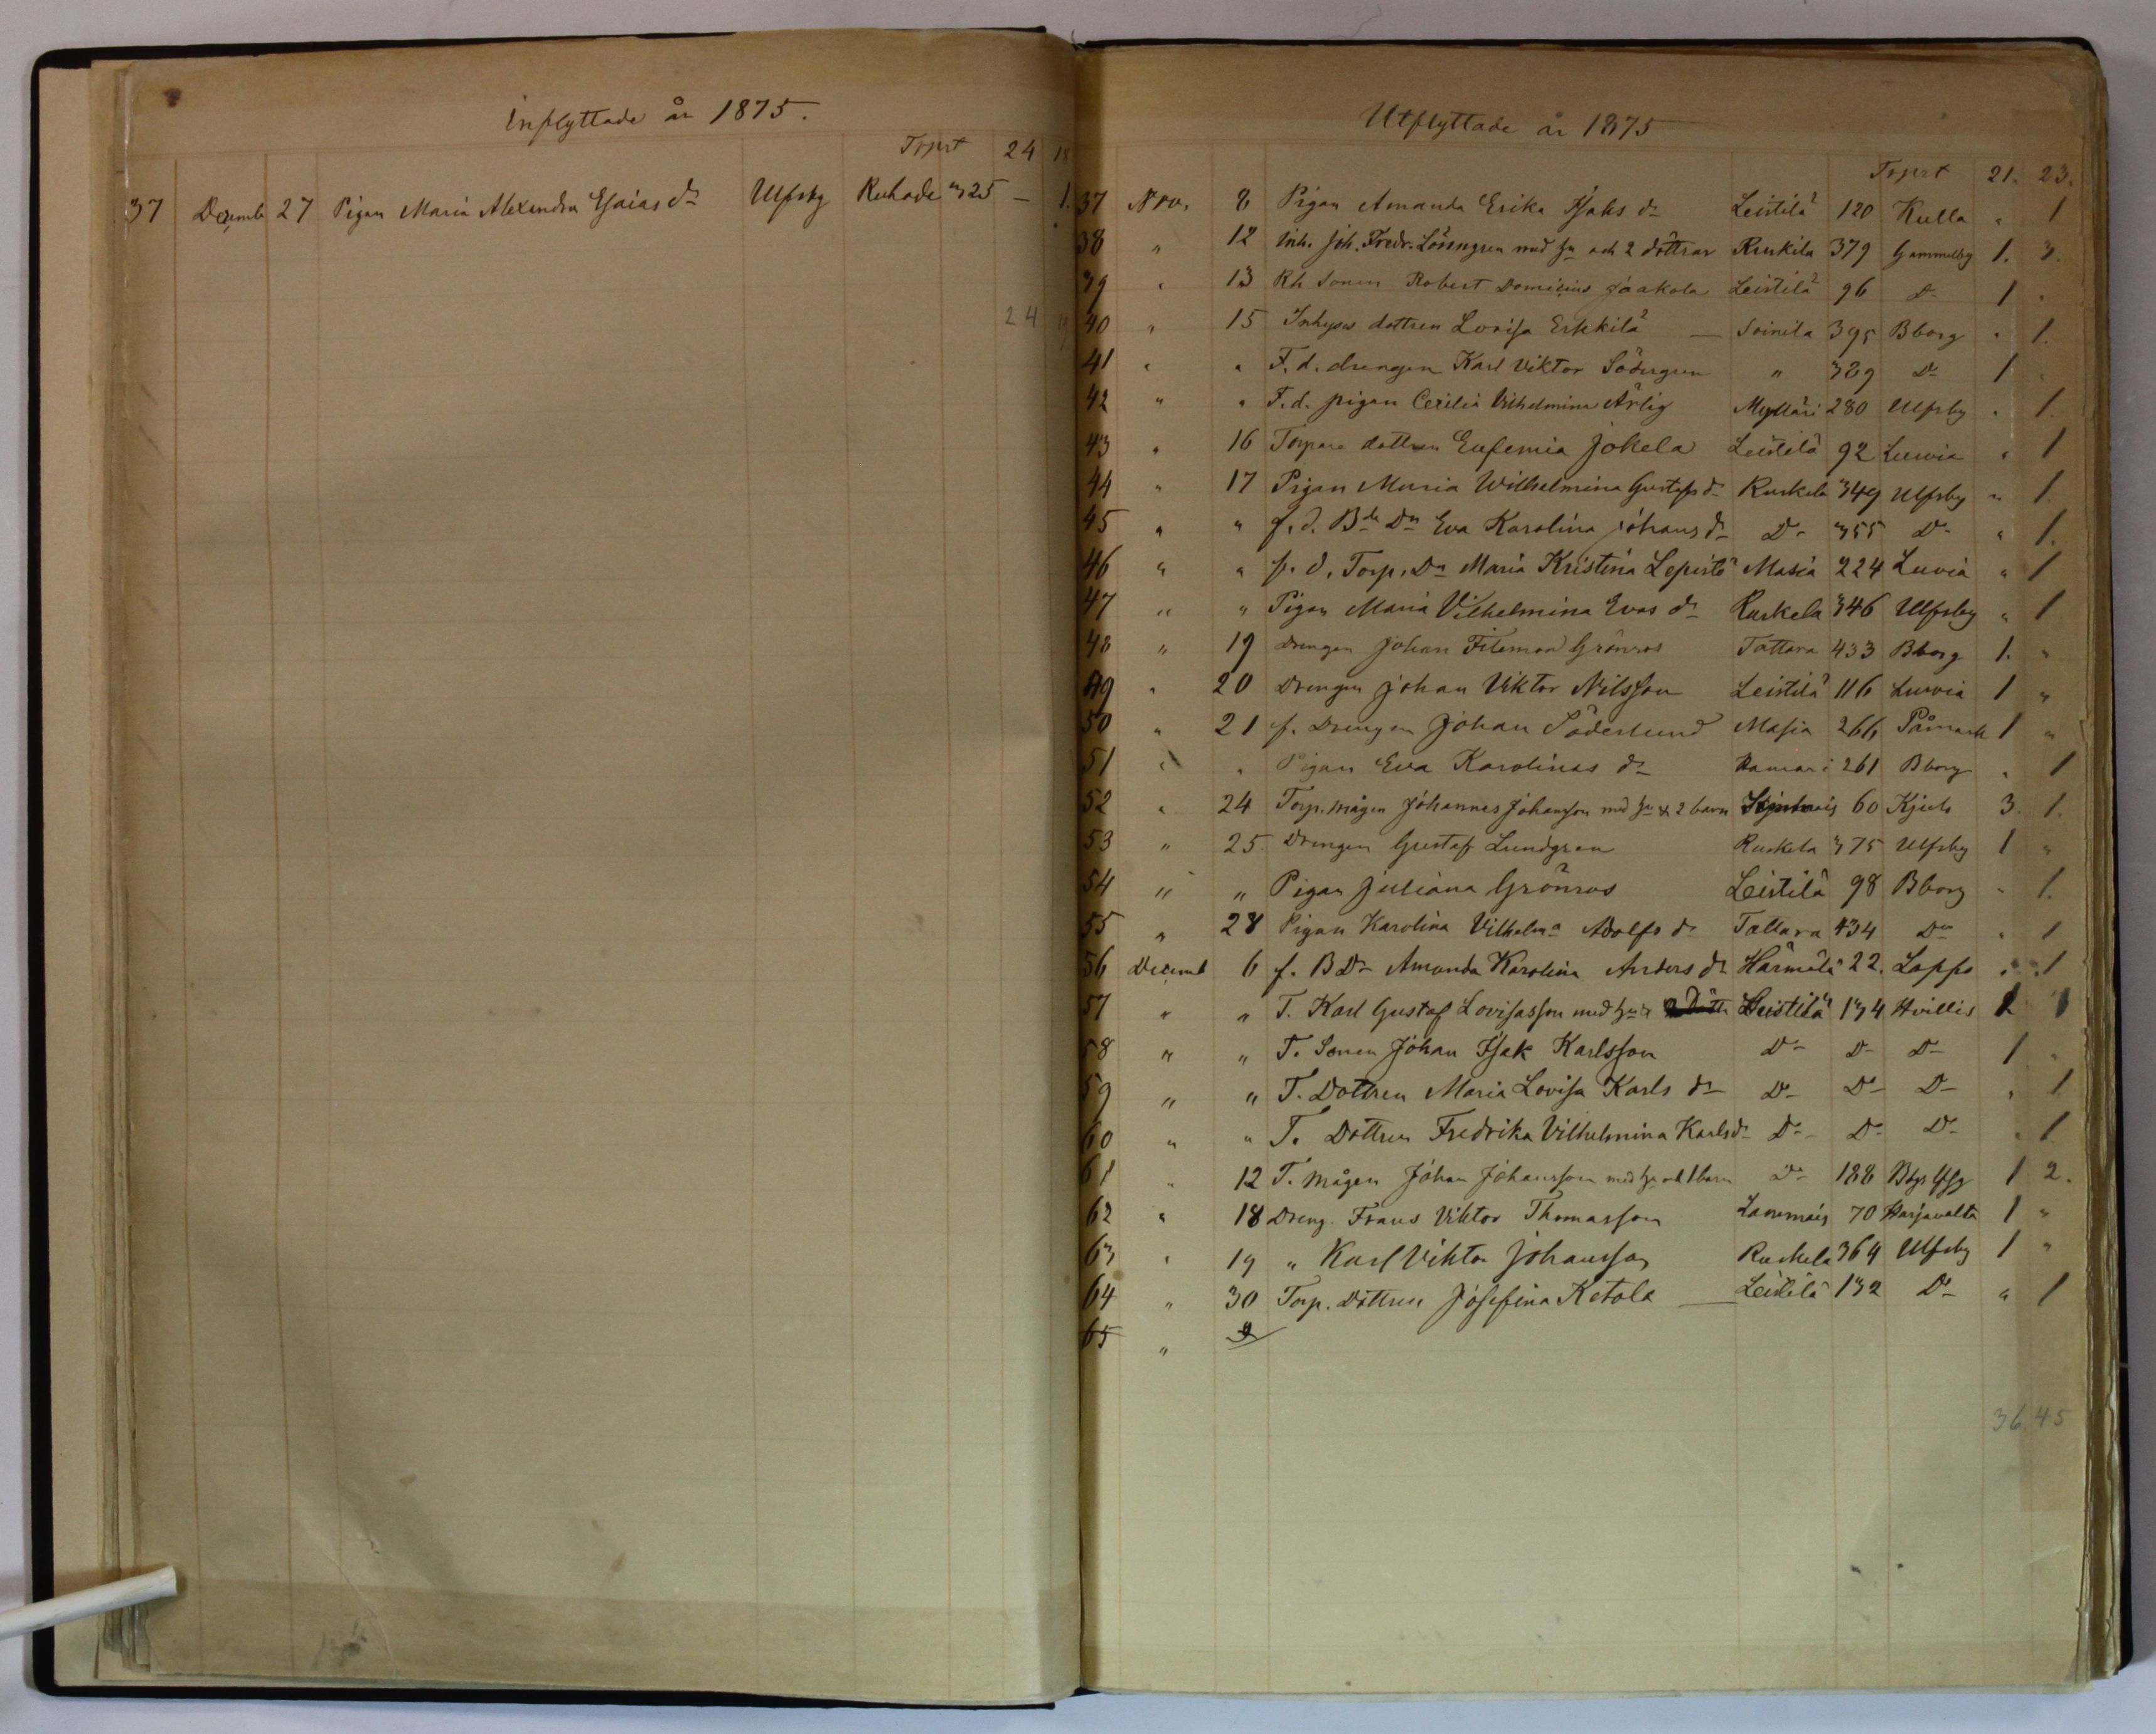 Inflyttade år 1875.
Trprt 24 18
37 Decemb 27 Pigan Maria Alexandra Esaias dr Ulfsby 325 — 1.
24 19
Utflyttade år 1875
Trprt 21. 23.
37 Nov. 8 Pigan Amanda Erika Isaks dr Leistilä 120 Kulla " 1
38 " 12 Inh. Joh. Fredr. Lönngren med hu och 2 döttrar Ruskila 379 Gammelby 1. 3.
39 " 13 Rh Sonen Robert Domicius Jaakola Leistilä 96 Do 1 "
40 " 15 Inhyses dottren Lovisa Erkkilä — Soinila 395 Bborg " 1.
41 " " F. d. drengen Karl Viktor Södergren " 389 Do 1
42 " " F. d. pigan Cecilia Vilhelmina Ärlig Mylläri 280 Ulfsby " 1
43 " 16 Torpare dottren Eufemia Jokela Leistilä 92 Luvia " 1
44 " 17 Pigan Maria Wilhelmina Gustafs dr Ruskela 349 Ulfsby " 1.
45 " " f. d. Bde Dn Eva Karolina Johans dr Do 355 Do " 1.
46 " " f. d. Torp. Dn Maria Kristina Lepistö Masia 224 Luvia " 1
47 " " Pigan Maria Vilhelmina Evas dr Ruskela 346 Ulfsby " 1
48 " 19 Drengen Johan Fileman Grönros Tattara 433 Bborg 1. "
49 " 20 Drengen Johan Viktor Nilsson Leistilä 116 Luvia 1 "
50 " 21 f. Drengen Johan Söderlund Masia 266 Påmark 1 "
51 " " Pigan Eva Karolinas dr Ramari 261 Bborg " 1
52 " 24 Torp. mågen Johannes Johansson med hu & 2 barn 60 Kjulo 3. 1.
53 " 25 Drengen Gustaf Lundgren Ruskela 375 Ulfsby 1 "
54 " " Pigan Juliana Grönros Leistilä 98 Bborg " 1.
55 " 28 Pigan Karolina Vilhelma Adolfs dr Tattara 434 Do " 1
56 Decemb 6 f. B Dr Amanda Karolina Anders dr Härmälä 22. Lappo " 1
57 " " T. Karl Gustaf Lovisasson med hu Leistilä 134 Hvittis 1 1
58 " " T. Sonen Johan Isak Karlsson Do Do Do 1 "
59 " " T. Dottren Maria Lovisa Karls dr Do Do Do " 1
60 " " T. Dottren Fredrika Vilhelmina Karls dr Do Do Do " 1
61 " 12 T. mågen Johan Johansson med hu och 1 barn Do 188 1 2.
62 " 18 Dreng. Frans Viktor Thomasson Lammais 70 Harjavalta 1 "
63 " 19 " Karl Viktor Johansson Ruskela 364 Ulfsby 1 "
64 " 30 Torp. Dottren Josefina Ketola — Leistilä 132 Do " 1
65 " "
36 45